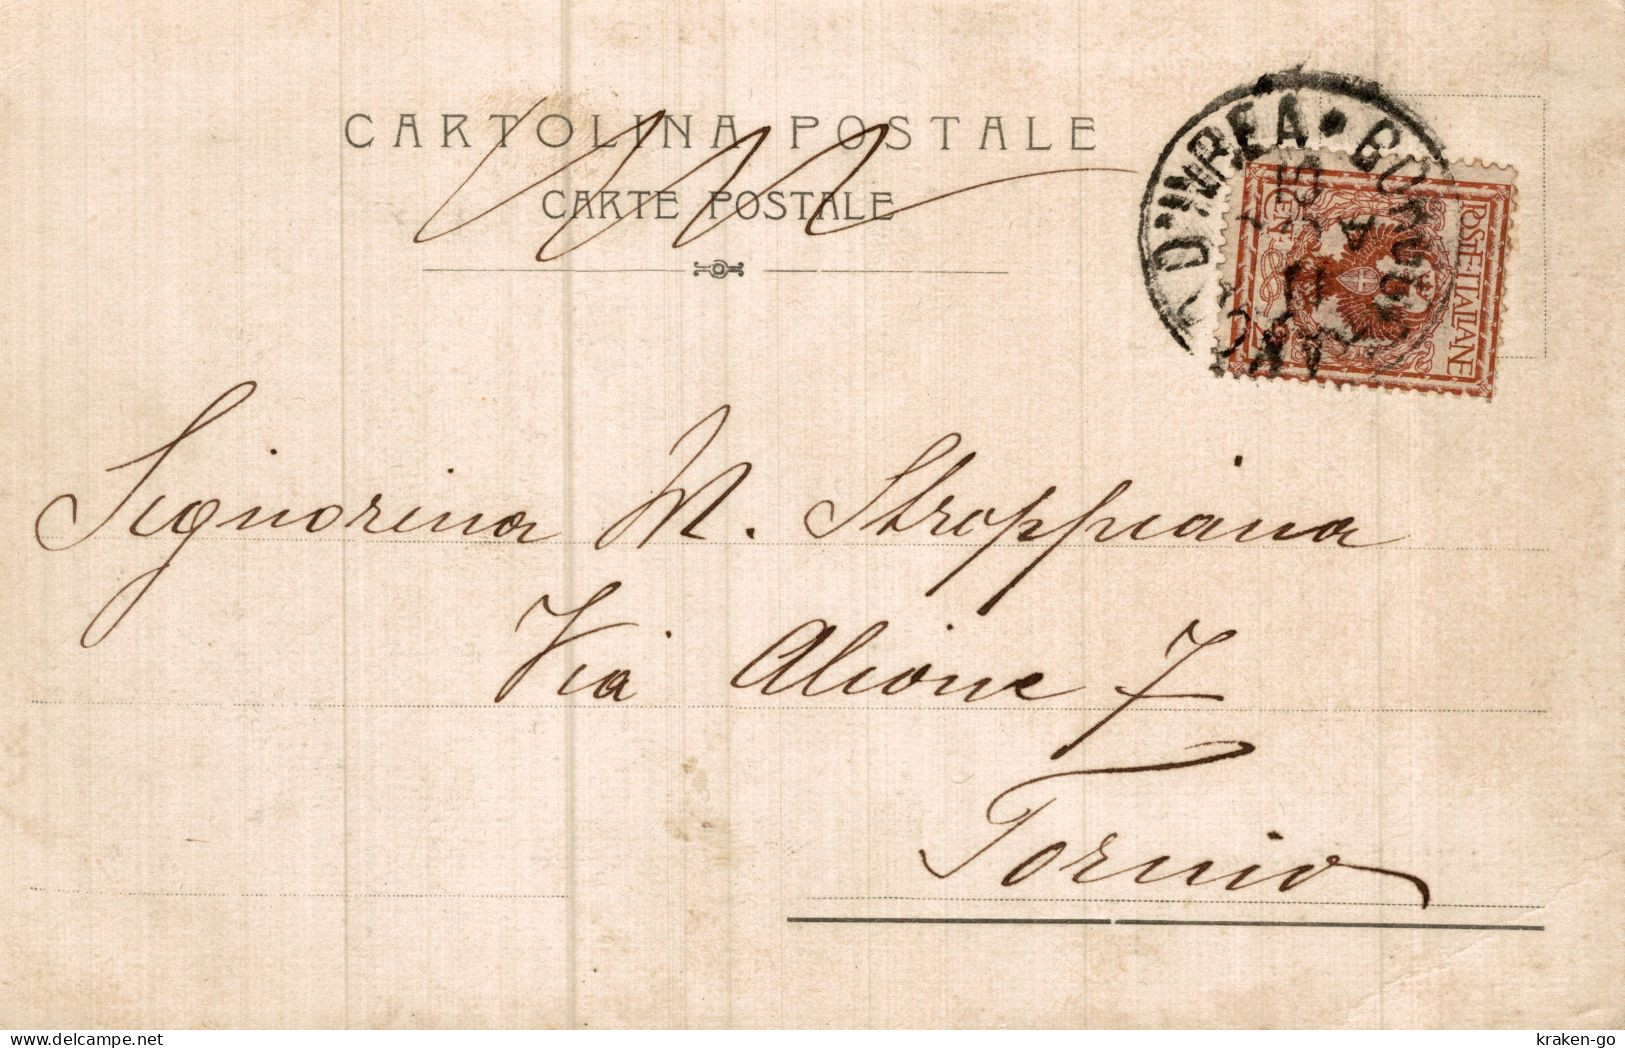 CARTOLINA POSTALE
CARTE POSTALE
D'INREA * BORGO
10
11
POSTE·ITALIANE
CENT 2
Signorina M. Stroppiana
Via Alione 7
Torino
kraken-go